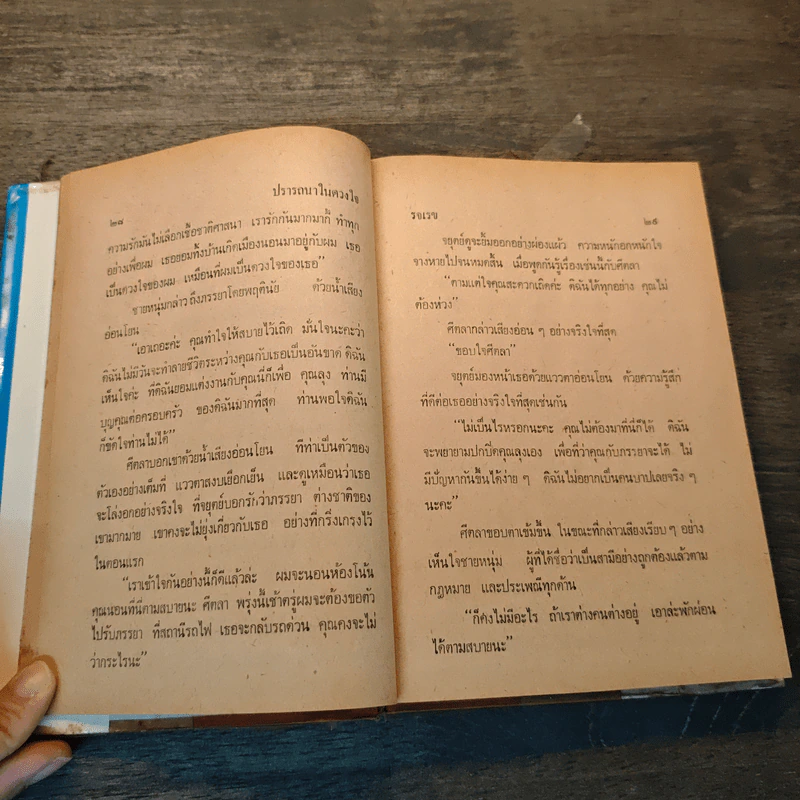 ปรารถนาในดวงใจ
๒๘
ความรักมันไม่เลือกเชื้อชาติศาสนา เรารักกันมากมาก็ ทำทุก
อย่างเพื่อผม เธอยอมทิ้งบ้านเกิดเมืองนอนมาอยู่กับผม เธอ
เป็นดวงใจของผม เหมือนที่ผมเป็นดวงใจของเธอ”
ชายหนุ่มกล่าวถึงภรรยาโดยพฤตินัย ด้วยน้ำเสียง
อ่อนโยน
“เอาเถอะค่ะ คุณทำใจให้สบายไว้เถิด มั่นใจนะคะว่า
ดิฉันไม่มีวันจะทำลายชีวิตระหว่างคุณกับเธอเป็นอันขาด ดิฉัน
เห็นใจค่ะ ที่ดิฉันยอมแต่งงานกับคุณนี่ก็เพื่อ คุณลุง ท่านมี
บุญคุณต่อครอบครัว ของดิฉันมากที่สุด ท่านพอใจดิฉัน
ก็ขัดใจท่านไม่ได้”
ศีตลาบอกเขาด้วยน้ำเสียงอ่อนโยน ทีท่าเป็นตัวของ
ตัวเองอย่างเต็มที่ แววตาสงบเยือกเย็น และดูเหมือนว่าเธอ
จะโล่งอกอย่างจริงใจ ที่จยุตย์บอกรักว่าภรรยา ต่างชาติของ
เขามากมาย เขาคงจะไม่ยุ่งเกี่ยวกับเธอ อย่างที่กริ่งเกรงไว้
ในตอนแรก
“เราเข้าใจกันอย่างนี้ก็ดีแล้วล่ะ ผมจะนอนห้องโน้น
คุณนอนที่นี่ตามสบายนะ ศีตลา พรุ่งนี้เช้าตรู่ผมจะต้องขอตัว
ไปรับภรรยา ที่สถานีรถไฟ เธอจะกลับรถด่วน คุณคงจะไม่
ว่ากระไรนะ”
รจเรข
๒๙
จยุตย์ดูจะยิ้มออกอย่างผ่องแผ้ว ความหนักอกหนักใจ
จางหายไปจนหมดสิ้น เมื่อพูดกันรู้เรื่องเช่นนี้กับศีตลา
“ตามแต่ใจคุณสะดวกเถิดค่ะ ดิฉันได้ทุกอย่าง คุณไม่
ต้องห่วง”
ศีตลากล่าวเสียงอ่อน ๆ อย่างจริงใจที่สุด
“ขอบใจศีตลา”
จยุตย์มองหน้าเธอด้วยแววตาอ่อนโยน ด้วยความรู้สึก
ที่ดีต่อเธออย่างจริงใจที่สุดเช่นกัน
“ไม่เป็นไรหรอกนะคะ คุณไม่ต้องมาที่นี่ก็ได้ ดิฉัน
จะพยายามปกปิดคุณลุงเอง เพื่อที่ว่าคุณกับภรรยาจะได้ ไม่
มีปัญหากันขึ้นได้ง่าย ๆ ดิฉันไม่อยากเป็นคนบาปเลยจริง ๆ
นะคะ”
ศีตลาขอบตาเข้มขึ้น ในขณะที่กล่าวเสียงเรียบ ๆ อย่าง
เห็นใจชายหนุ่ม ผู้ที่ได้ชื่อว่าเป็นสามีอย่างถูกต้องแล้วตาม
กฎหมาย และประเพณีทุกด้าน
“ก็คงไม่มีอะไร ถ้าเราต่างคนต่างอยู่ เอาล่ะพักผ่อน
ได้ตามสบายนะ”